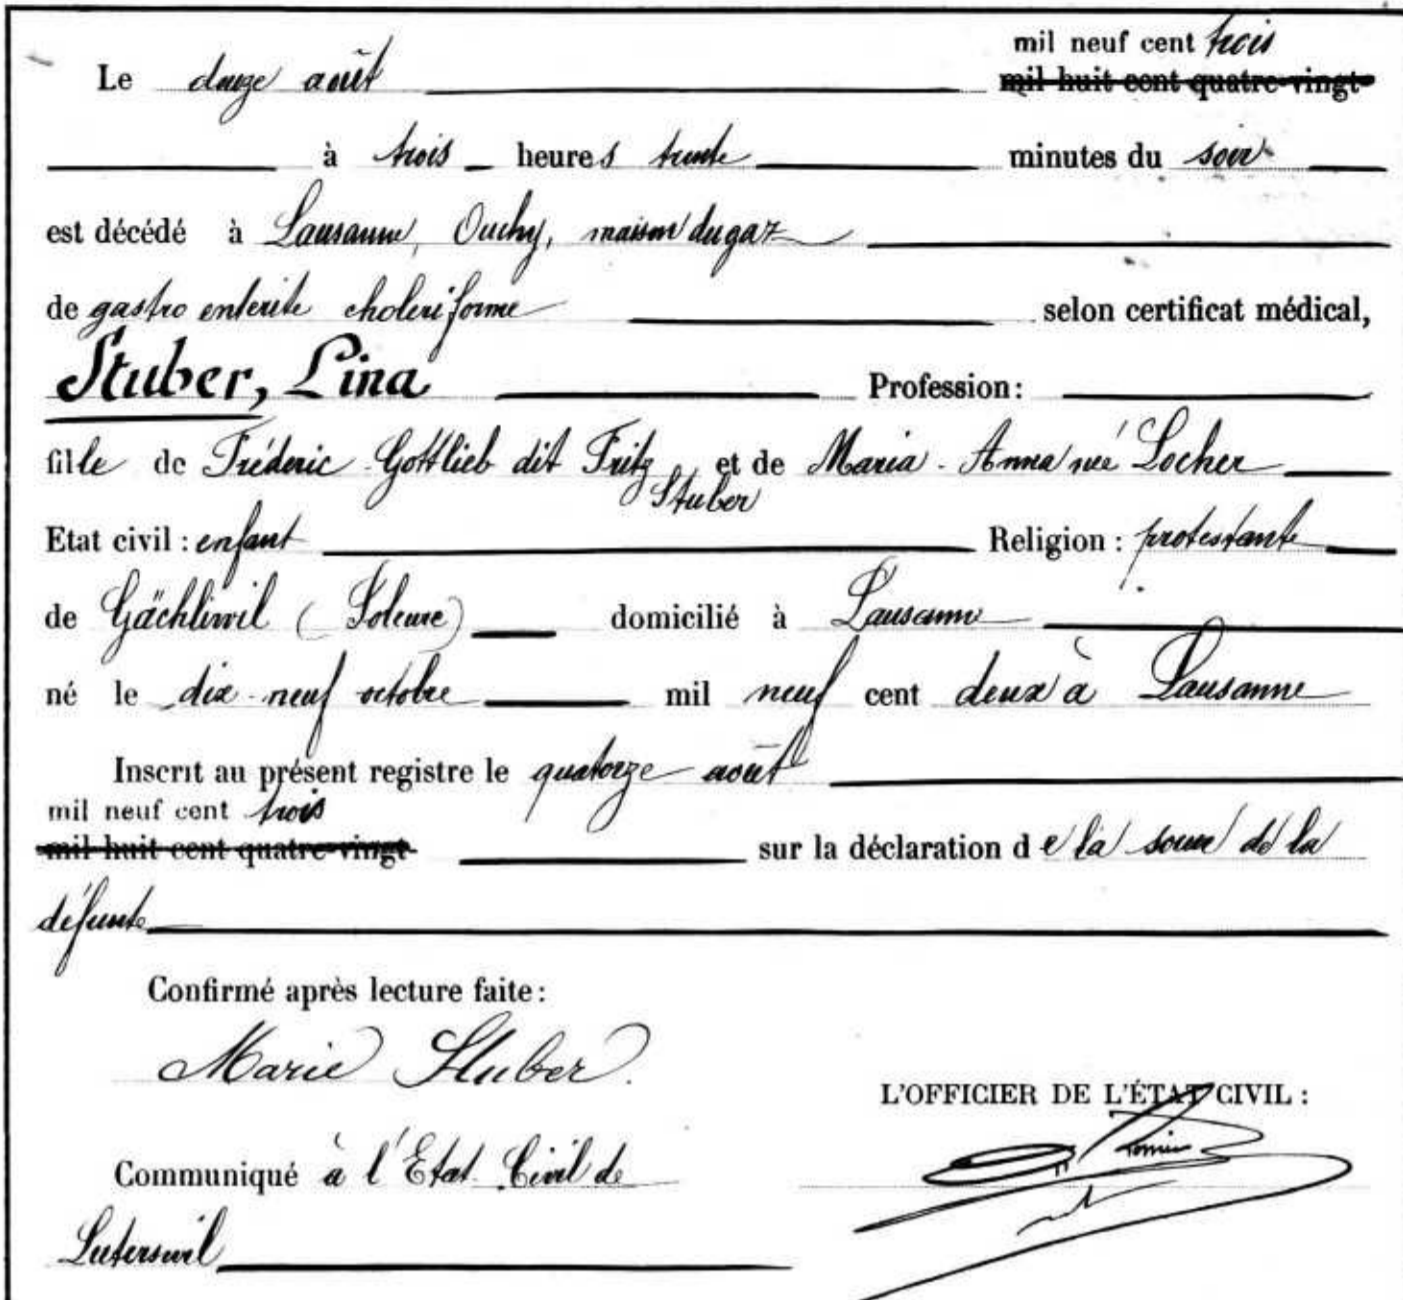 Le douze août mil neuf cent trois
mil huit cent quatre-vingt
à trois heures trente minutes du soir
est décédé à Lausanne, Ouchy, maison du gaz
de gastro enterite choleriforme selon certificat médical,
Stuber, Lina Profession:
fille de Fréderic-Gottlieb dit Fritz et de Maria-Anna née Locher
Stuber
Etat civil : enfant Religion : protestante
de Gächliwil (Soleure) domicilié à Lausanne
né le dix-neuf octobre mil neuf cent deux à Lausanne
Inscrit au présent registre le quatorze août
mil neuf cent trois
mil huit cent quatre-vingt sur la déclaration de la soeur de la
défunte
Confirmé après lecture faite :
Marie Stuber.
L'OFFICIER DE L'ÉTAT CIVIL :
Communiqué à l'Etat Civil de
Luterswil